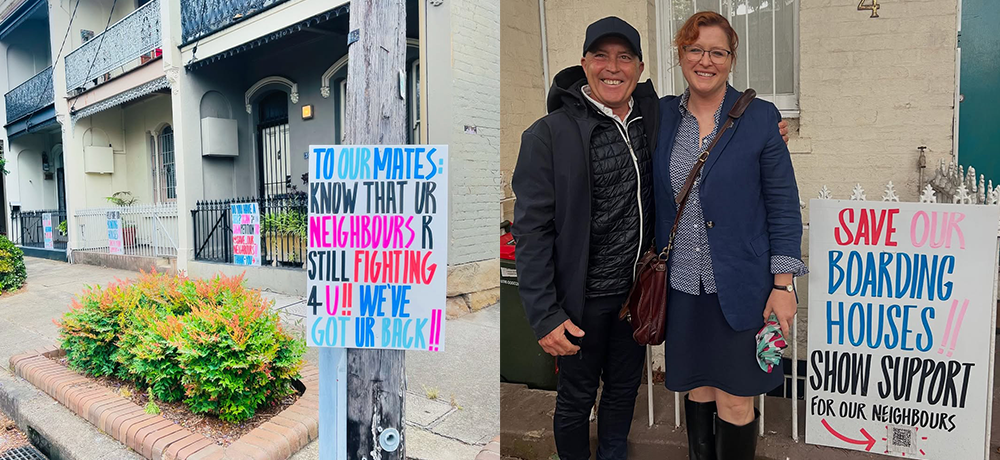 TO OUR MATES:
KNOW THAT UR
NEIGHBOURS R
STILL FIGHTING
4 U!! WE'VE
GOT UR BACK!!
4
SAVE OUR
BOARDING
HOUSES!!
SHOW SUPPORT
FOR OUR NEIGHBOURS